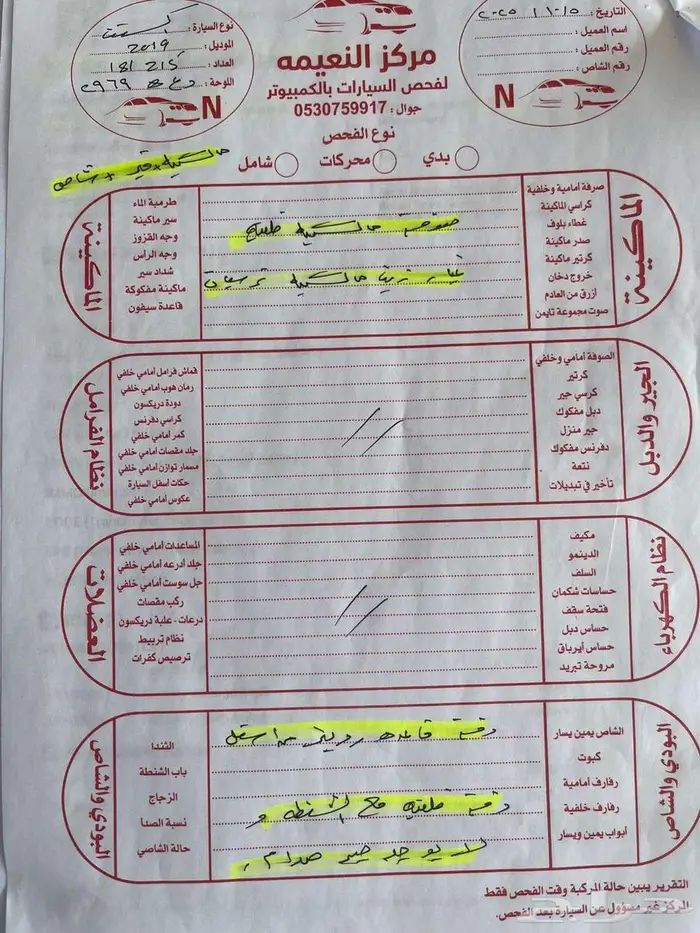 التاريخ: ٢٠٢٥/١٠/٥
اسم العميل:
رقم العميل:
رقم الشاص:
N
مركز النعيمه
لفحص السيارات بالكمبيوتر
جوال: 0530759917
نوع السيارة: اكسنت
الموديل: 2019
العداد: 181 215
اللوحة:
N
نوع الفحص
بدي
محركات
شامل
ماكينة + قير + شاص
الماكينة
صرفة أمامية وخلفية
كراسي الماكينة
غطاء بلوف
صدر ماكينة
كرتير ماكينة
خروج دخان
ازرق من العادم
صوت مجموعة تايمن
ماكينة
غيار زيت ماكينة
طرمبة الماء
سير ماكينة
وجه القزوز
وجه الرأس
شداد سير
ماكينة مفكوكة
قاعدة سيفون
الماكينة
الجير والدبل
الصوفة أمامي وخلفي
كرتير
كرسي جير
دبل مفكوك
جير منزل
دفرنس مفكوك
نتعة
تأخير في تبديلات
//
قماش فرامل أمامي خلفي
رمان هوب أمامي خلفي
دودة دريكسون
كراسي دفرنس
كمر أمامي خلفي
جلد مقصات أمامي خلفي
مسمار توازن أمامي خلفي
حكات أسفل السيارة
عكوس أمامي خلفي
نظام الفرامل
نظام الكهرباء
مكيف
الدينمو
السلف
حساسات شكمان
فتحة سقف
حساس دبل
حساس أيرباق
مروحة تبريد
//
المساعدات أمامي خلفي
جلد أدرعه أمامي خلفي
جل سوست أمامي خلفي
ركب مقصات
درعات - علبة دريكسون
نظام تربيط
ترصيص كفرات
العضلات
البودي والشاص
الشاص يمين يسار
كبوت
رفارف أمامية
رفارف خلفية
أبواب يمين ويسار
دقمة قاعده رديتر من اسفل
دقمة خلفيه مع الشنطه و
لا يوجد جسر صدام
الشدا
باب الشنطة
الزجاج
نسبة الصدأ
حالة الشاصي
البودي والشاص
التقرير يبين حالة المركبة وقت الفحص فقط
المركز غير مسؤول عن السيارة بعد الفحص.